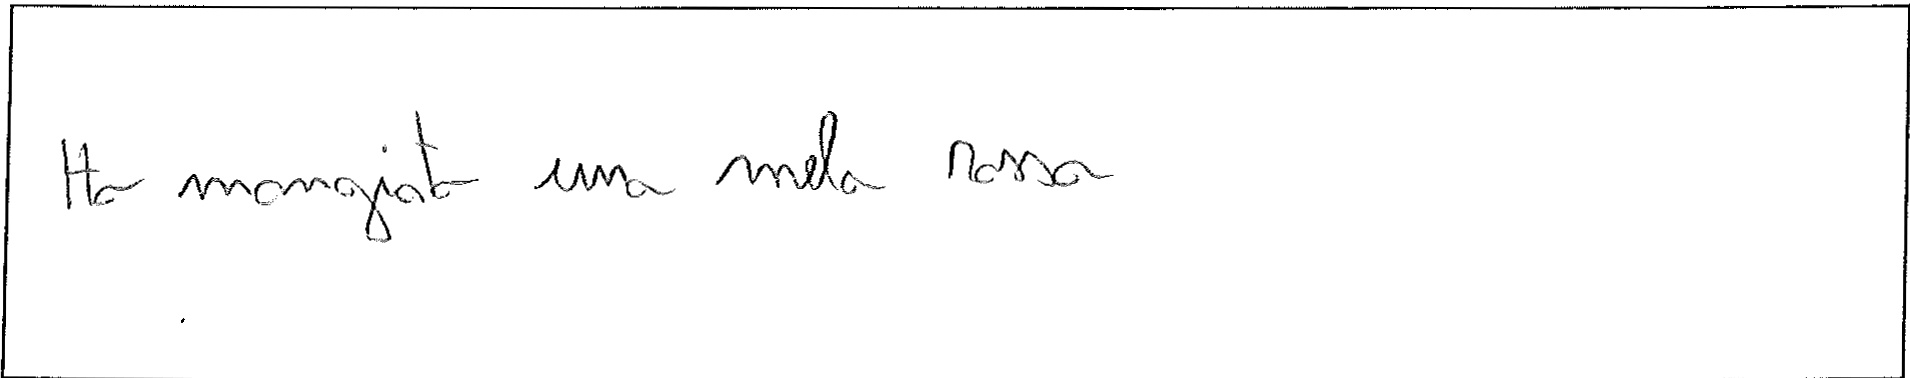 Ha mangiato una mela rossa